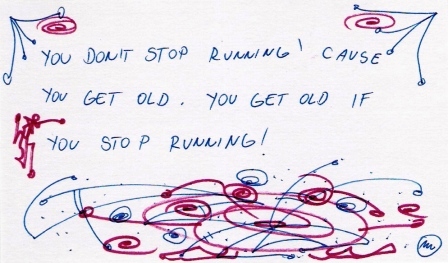 YOU DON'T STOP RUNNING 'CAUSE
YOU GET OLD. YOU GET OLD IF
YOU STOP RUNNING!